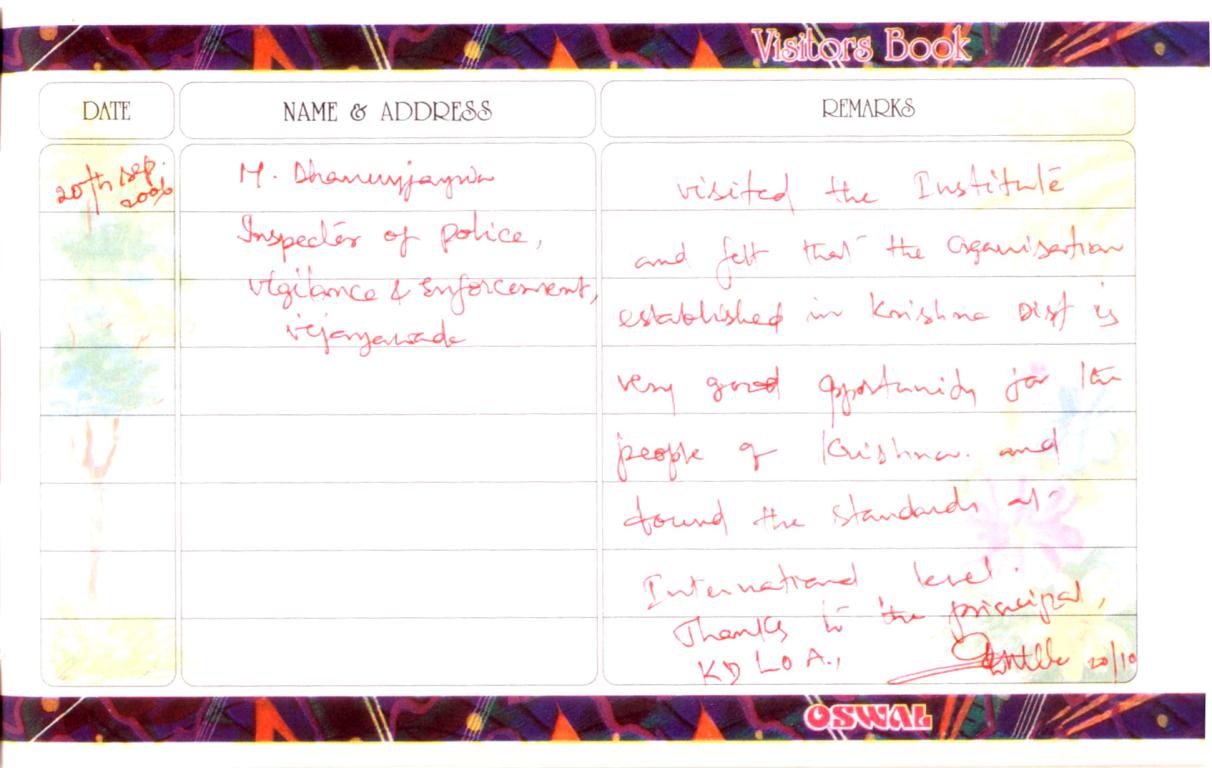 Visitors Book
DATE
NAME & ADDRESS
REMARKS
20th Sep.
2006
M. Dhanunjaya
Inspector of police,
vigilance & Enforcement,
vijayawada
visited the Institute
and felt that the organisation
established in Krishna Dist is
very good opportunity for the
people of Krishna. and
found the standards at
International level.
Thanks to the principal,
KD LO A.,
20/10
OSWAL